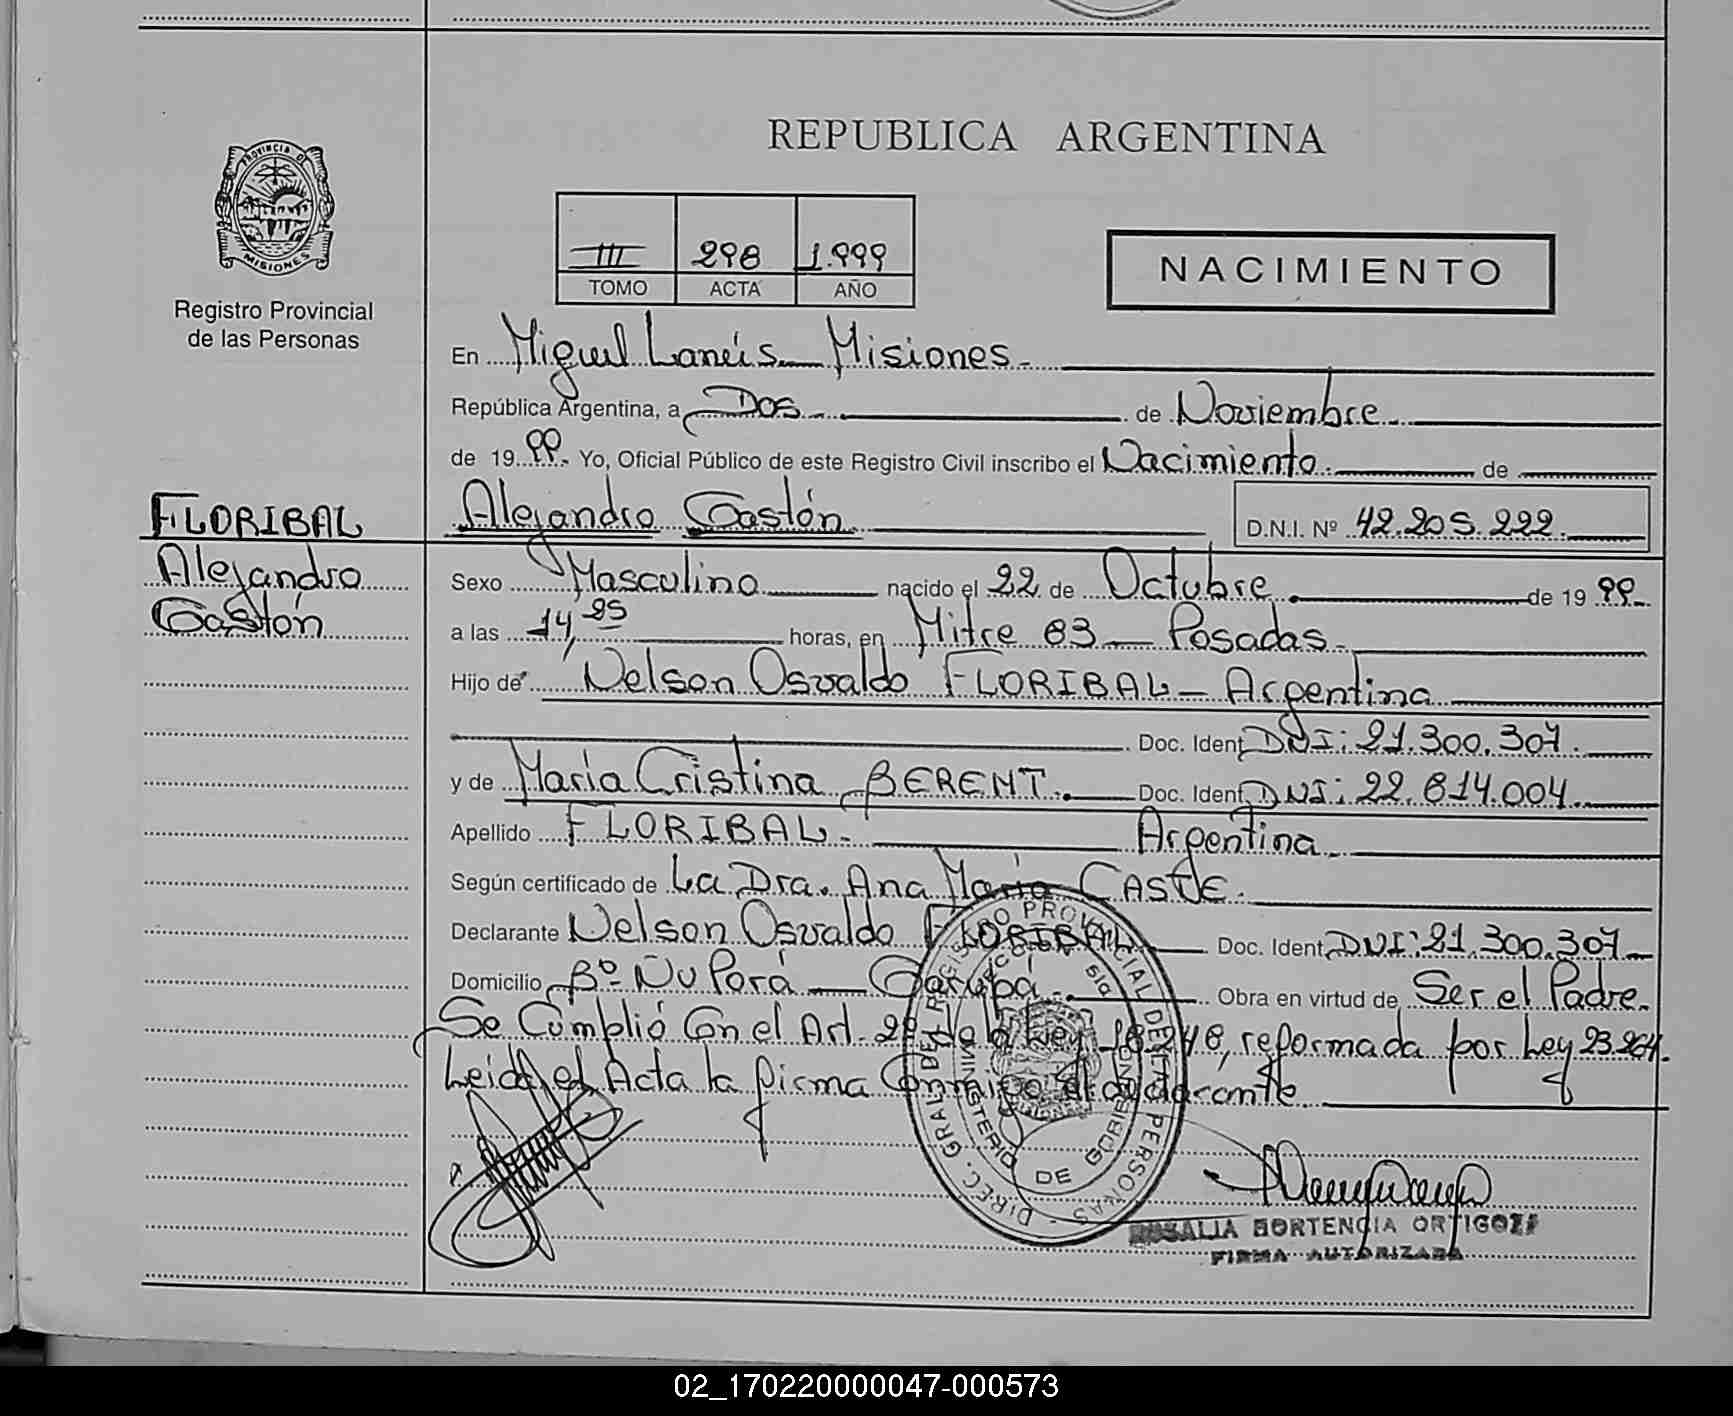 REPUBLICA ARGENTINA
PROVINCIA DE
MISIONES
Registro Provincial
de las Personas
III 298 1.999
TOMO ACTA AÑO
NACIMIENTO
En Miguel Lanús Misiones.
República Argentina, a Dos de Noviembre
de 1999. Yo, Oficial Público de este Registro Civil inscribo el Nacimiento. de
FLORIBAL Alejandro Gastón D.N.I. Nº 42.205.222.
Alejandro
Gastón
Sexo Masculino nacido el 22 de Octubre de 1999.
a las 14,25 horas, en Mitre 83 — Posadas.
Hijo de Nelson Osvaldo FLORIBAL — Argentina
Doc. Ident. DNI: 21.300.307.
y de María Cristina BERENT. Doc. Ident. DNI: 22.814.004.
Apellido FLORIBAL. Argentina.
Según certificado de La Dra. Ana María
Declarante Nelson Osvaldo FLORIBAL Doc. Ident. DNI: 21.300.307
Domicilio Bº Ñu Porá — Garupá. Obra en virtud de Ser el Padre.
Se Cumplió Con el Art. de la Ley 18.248, reformada por Ley 23.264.
Leida el Acta la firma Conmigo el declarante
DIREC. GRAL DEL REGISTRO PROVINCIAL DE LAS PERSONAS
MINISTERIO DE GOBIERNO
HORTENCIA ORTIGOZA
FIRMA AUTORIZADA
02_170220000047-000573